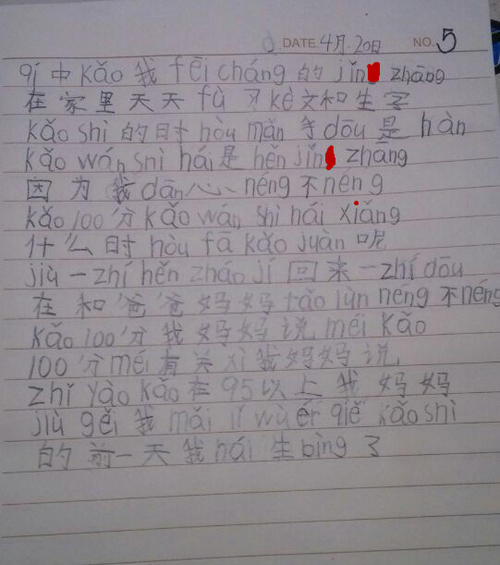 DATE 4月20日 NO. 5
qí 中 kǎo 我 fēi cháng 的 jǐn zhāng
在 家 里 天 天 fù 习 kè 文 和 生 字
kǎo shì 的 时 hòu mǎn 手 dōu 是 hàn
kǎo wán shì hái 是 hěn jǐn zhāng
因 为 我 dān 心 néng 不 néng
kǎo 100 分 kǎo wán shì hái xiǎng
什 么 时 hòu fā kǎo juàn 呢
jiù 一 zhí hěn zháo jí 回 来 一 zhí dōu
在 和 爸 爸 妈 妈 tǎo lùn néng 不 néng
kǎo 100 分 我 妈 妈 说 méi kǎo
100 分 méi 有 关 xì 我 妈 妈 说
zhǐ yào kǎo 在 95 以 上 我 妈 妈
jiù gěi 我 mǎi lǐ wù ér qiě kǎo shì
的 前 一 天 我 hái 生 bìng 了